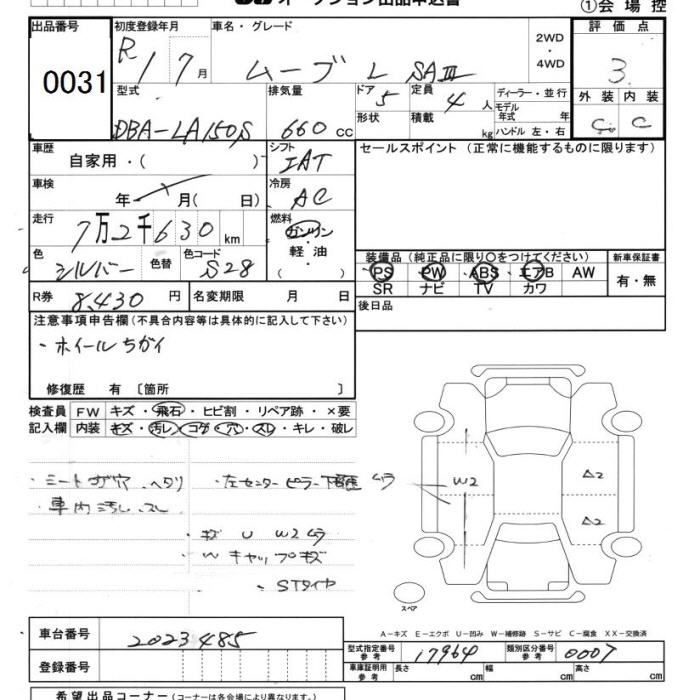 オークション出品申込書 ①会場控
出品番号 0031
初度登録年月 R1 7月
車名・グレード ムーブ L SAⅢ
2WD・4WD
評価点 3
外装 内装 C
型式 DBA-LA150S
排気量 660 cc
ドア 5
定員 4 人
形状 積載 kg
ディーラー・並行
モデル年式 年
ハンドル 左・右
車歴 自家用・( )
シフト IAT
セールスポイント (正常に機能するものに限ります)
車検 年 月( 日)
冷房 AC
走行 7万2千630 km
燃料 ガソリン・軽油・( )
色 シルバー 色替 色コード S28
装備品 (純正品に限り○をつけてください) 新車保証書
PS PW ABS エアB AW 有・無
SR ナビ TV カワ
R券 8,430 円 名変期限 月 日
後日品
注意事項申告欄(不具合内容等は具体的に記入して下さい)
・ホイールちがイ
修復歴 有 〔箇所 〕
検査員 FW キズ・飛石・ヒビ割・リペア跡・×要
記入欄 内装 キズ・汚レ・コゲ・穴・スレ・キレ・破レ
・シートコゲ穴 ヘタリ ・左センターピラー下 ムラ
・車内汚レ スレ
・キズ U W2ムラ
・Wキャップキズ
・STタイヤ
W2 A2
A2
スペア
A-キズ E-エクボ U-凹み W-補修跡 S-サビ C-腐食 XX-交換済
車台番号 2023485
型式指定番号 参考 17964 類別区分番号 参考 0007
登録番号
車庫証明用 参考 長さ cm 幅 cm 高さ cm
希望出品コーナー(コーナーは各会場により異なります。)